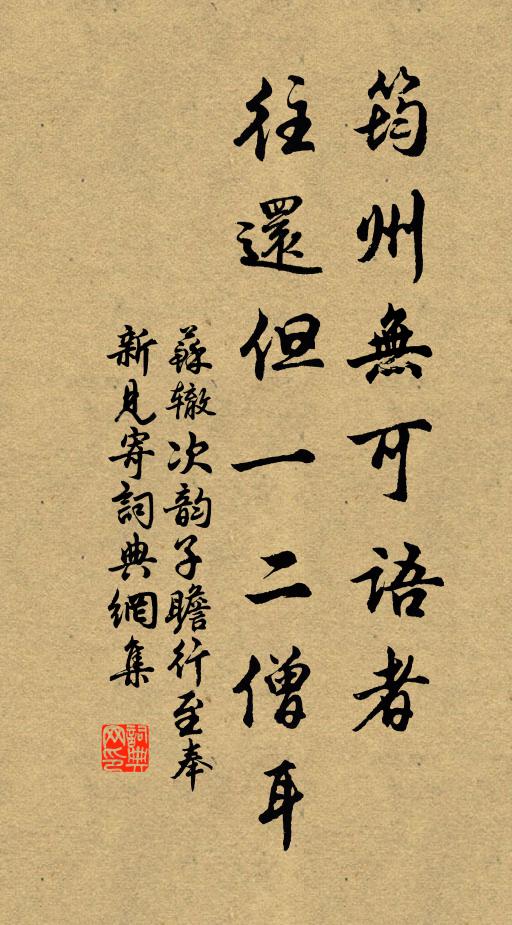 筠州無可語者
往還但一二僧耳
蘇轍次韵子瞻行至奉
新見寄詞典網集
詞典
网印